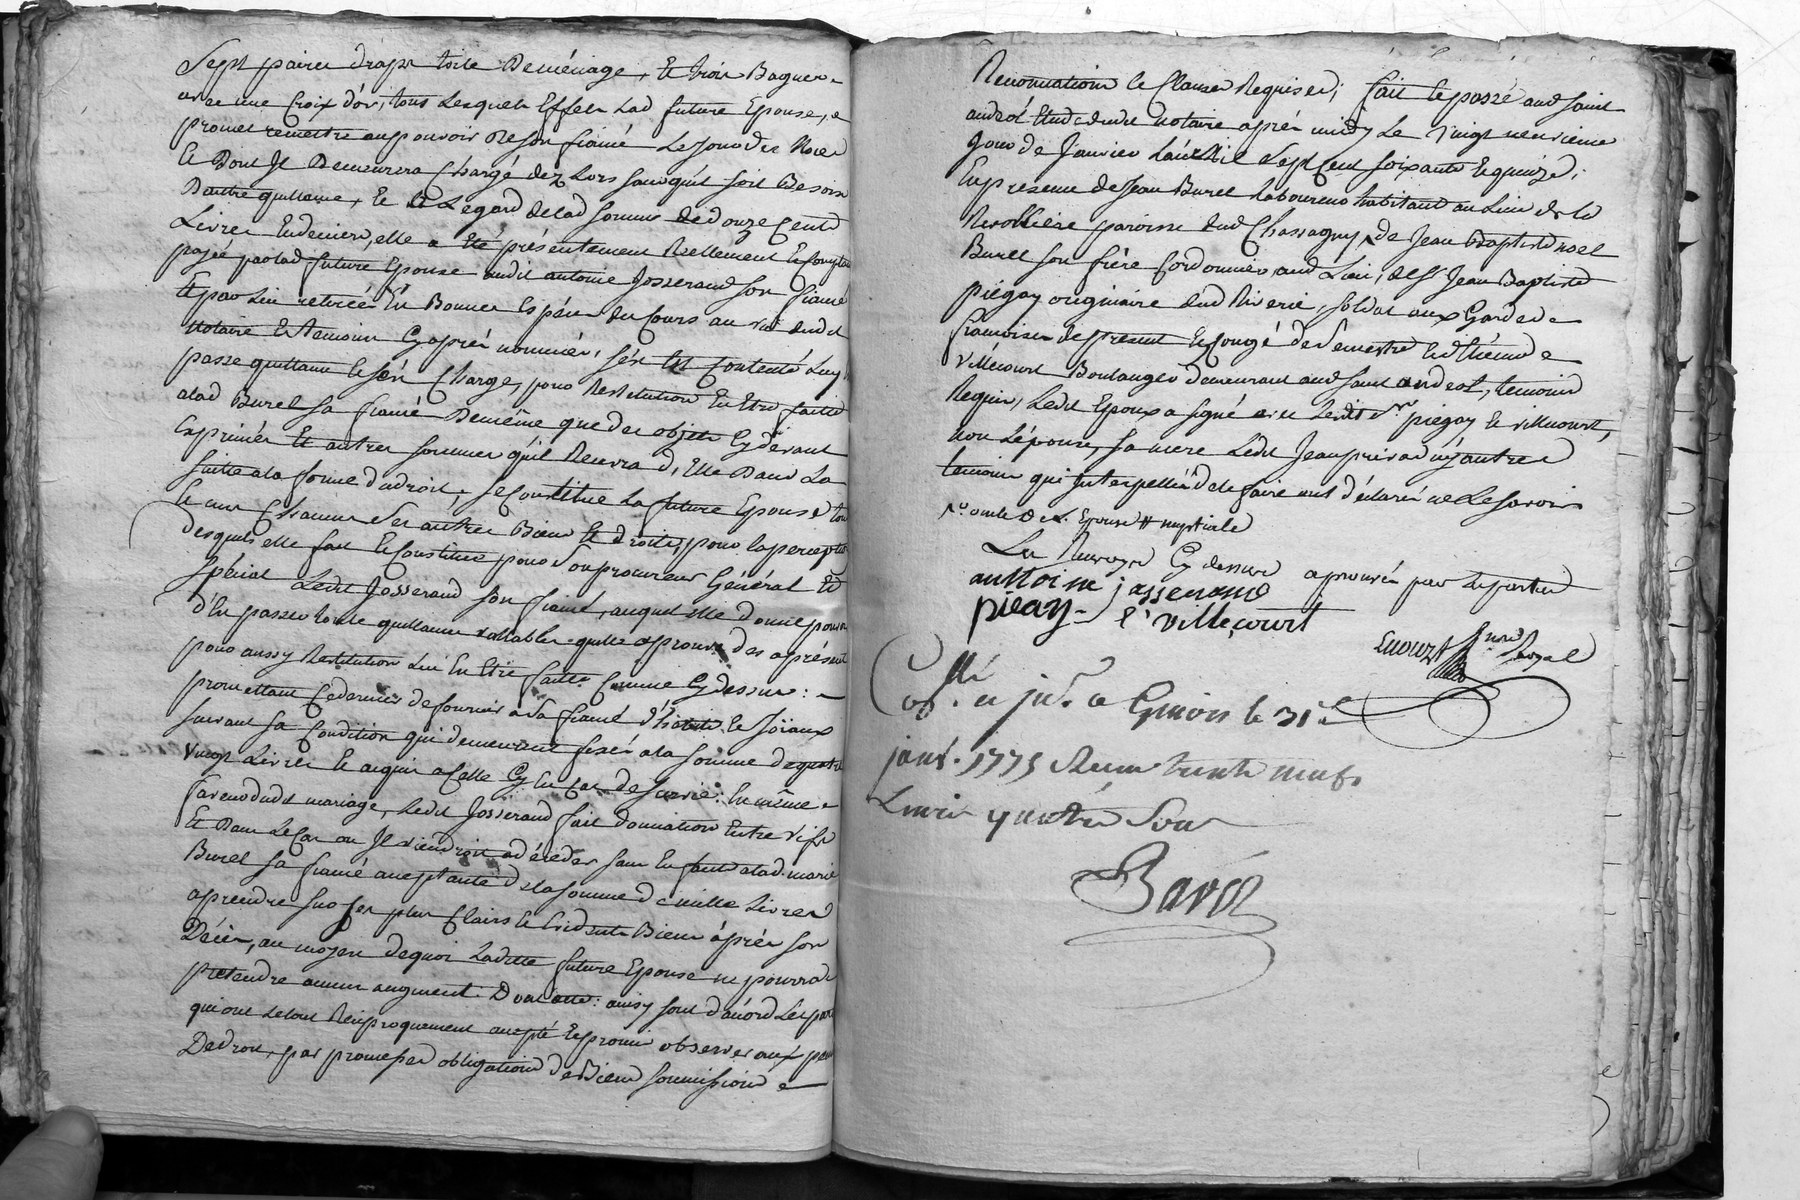 Sept paires draps toile Deménage, Et trois Bagues
avec une Croix d'or, tous Lesquels Effets Lad future Epouse,
promet remettre au pouvoir De son fiancé Le jour des Noces
Et Dont Il Demeurera Chargé dez Lors sans qu'il soit Besoin
D'autre quittance, Et à Legard delad somme de douze Cents
Livres En deniers, elle a Eté présentement Reellement Et Comptant
payée par lad future Epouse audit antoine Josserand son fiancé
Et par Lui retirée En Bonnes Espèces du Cours au vu dudit
Notaire Et Temoins Cy après nommés, s'en Est Contenté Luy
passe quittance Et s'en Charge, pour Restitution En Etre faitte
alad Burel sa fiancée Demême que des objets Cy devant
Exprimés Et autres sommes qu'il Recevra d'Elle Dans La
suitte a la forme du droit, se Constitue La future Epouse tous
Et uns Chacuns Ses autres Biens Et droits, pour la perception
desquels elle fait Et Constitue pour Son procureur Général Et
spécial Ledit Josserand son fiancé, auquel elle donne pouvoir
d'En passer toute quittance vallable qu'elle approuve des aprésent
pour aussy Restitution Lui En Etre faitte Comme Cy dessus :
promettant Ce dernier de fournir a sa fiancée d'habits Et Joïaux
suivant sa Condition qui demeurent fixés a la somme de quatre
vingt Livres Et acquis a Celle Cy En Cas de survie: En même
faveur dudit mariage, Ledit Josserand fait donnation Entre vifs
Et Dans Le Cas ou Il viendroit a décéder sans Enfants alad. marie
Burel sa fiancée acceptante de la somme de mille Livres
aprendre sur ses plus Clairs Et Evidents Biens après son
Décès, au moyen dequoi Laditte future Epouse ne pourra
prétendre aucun augment. Dont acte: ainsy sont d'acord Les parties
qui ont Le tout Réciproquement accepté Et promis observer aux peines
De droit, par promesses obligations de Biens soumissions
Renonciations Et Clauses Requises; fait Et passé aud saint
andéol Etude dudit notaire après midy Le vingt neuvieme
Jour de Janvier L'an Mil Sept Cent soixante Et quinze;
En presence de Jean Burel Laboureur habitant au Lieu de la
paroisse dud Chassagny, de Jean Baptiste noel
Burel son frère Cordonnier aud Lieu, de Sr. Jean Baptiste
piégay originaire dud Riverie, soldat aux Gardes
françoises de présent En Congé de Semestre Et d'Etienne
villecourt Boulanger demeurant aud saint andeol, temoins
Requis, Ledit Epoux a signé avec Lesdits Srs piégay Et villecourt,
non L'épouse, sa mere Ledit Jean privat ny autres
temoins qui Interpellés de le faire ont déclaré ne Le savoir
Epouse # nuptiale
Les Renvoys Cy dessus aprouvés par Les parties
anttoine jasserand
piegay e villecourt
nre Royal
Collé. et Jn.é a Givors le 31.e
janv. 1775 Recu trente neuf
Livres quatre Sous
Barod